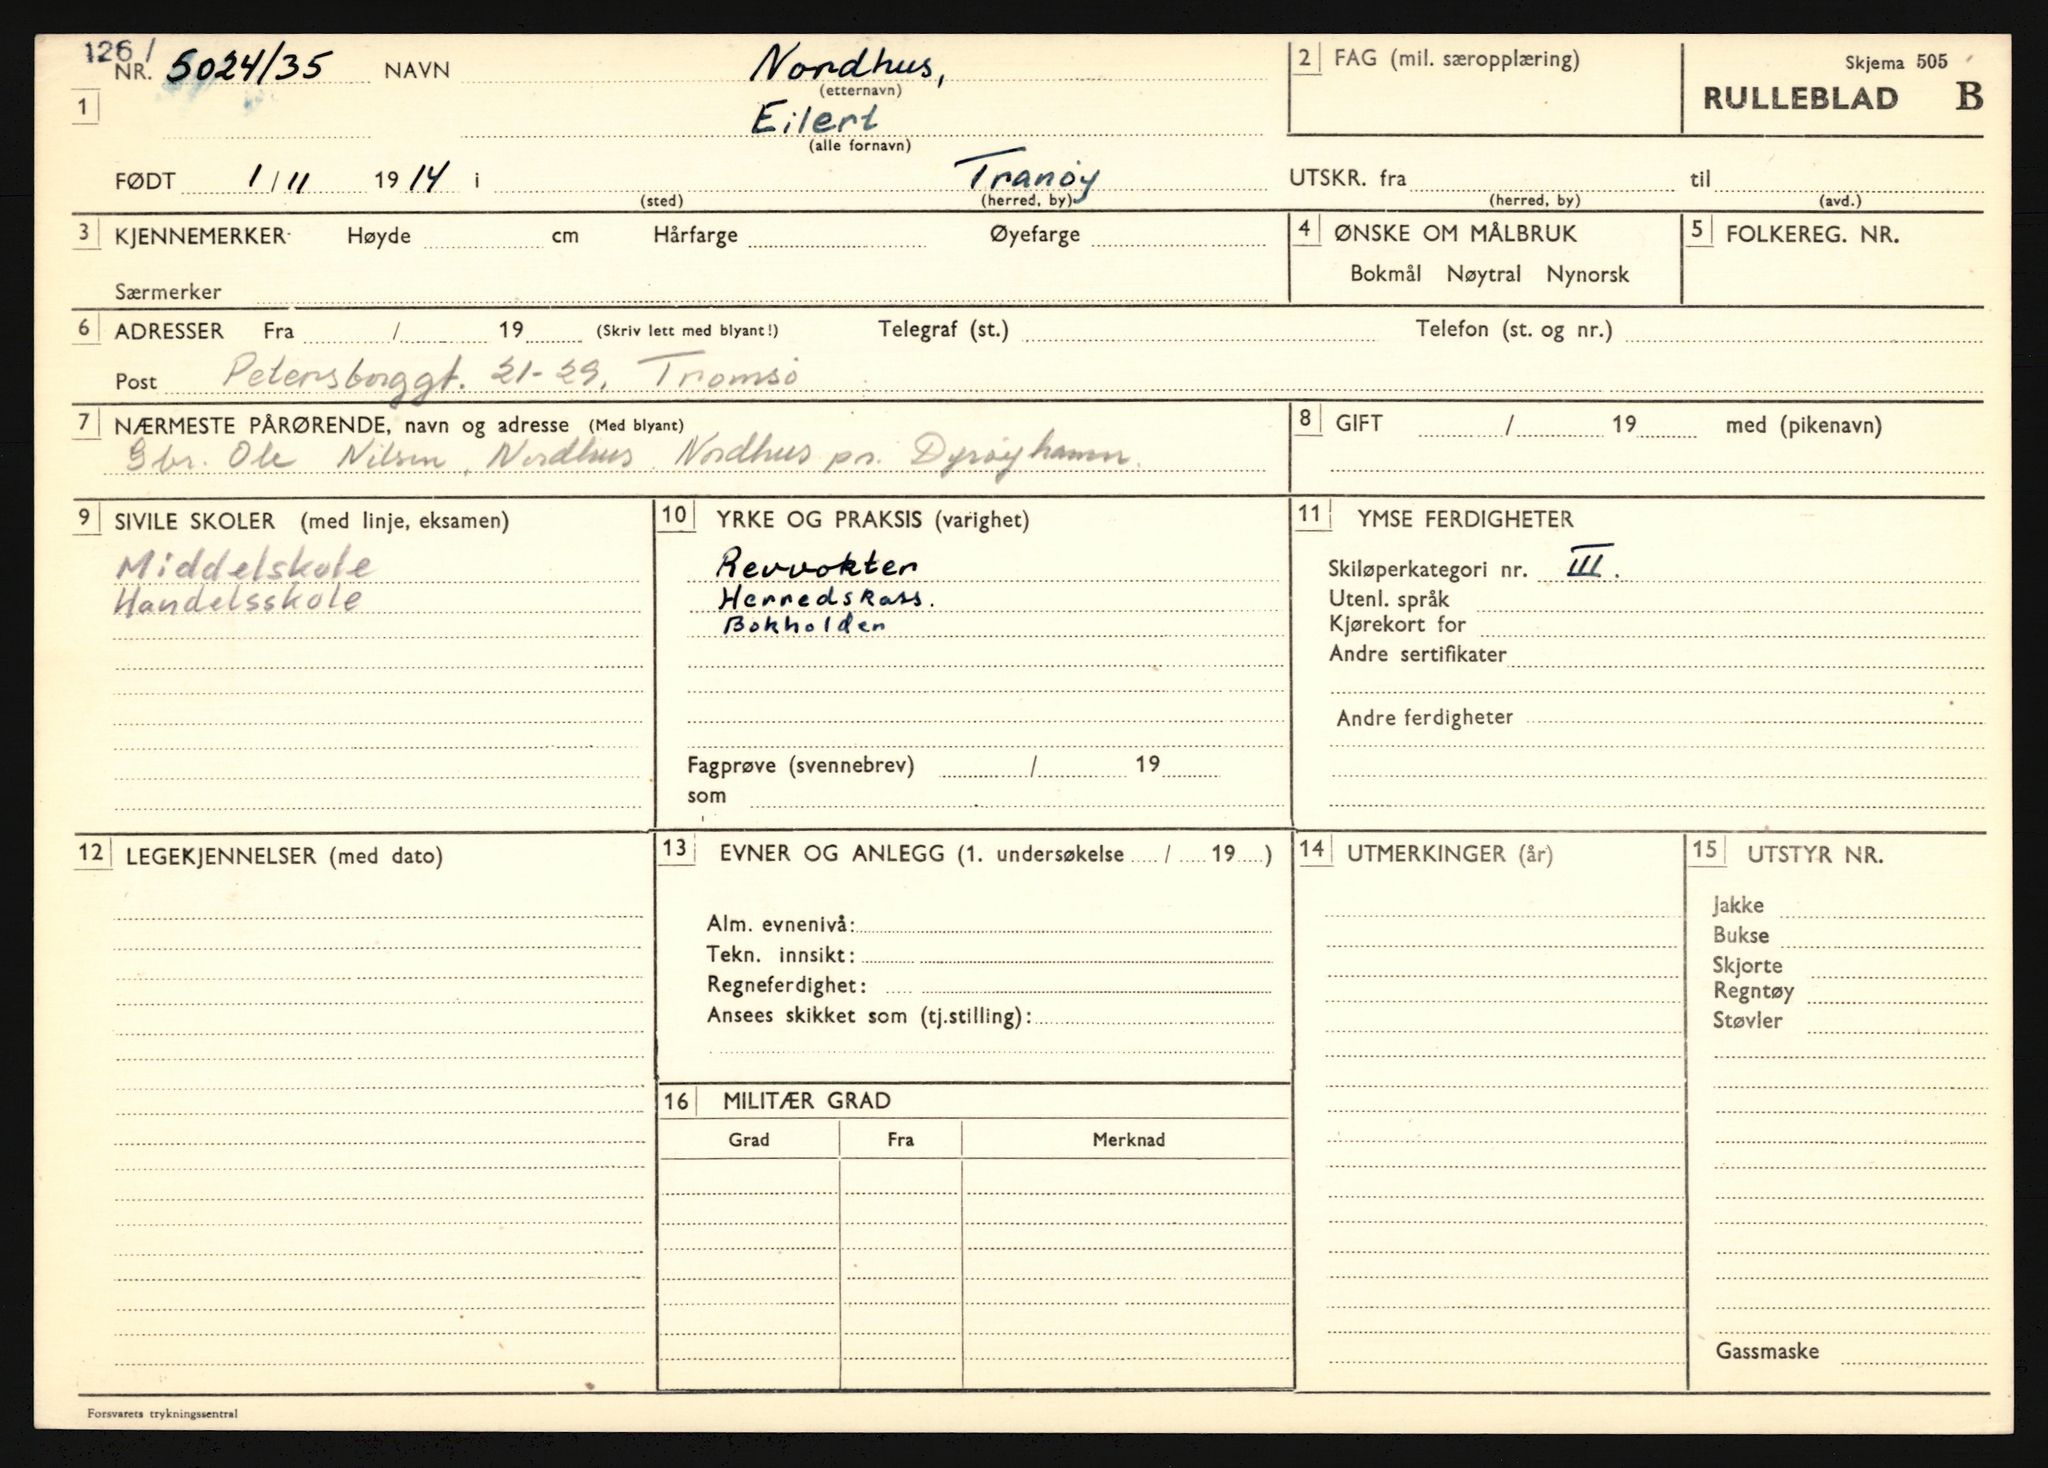 126/
NR. 5024/35 NAVN Nordhus,
(etternavn)
1
Eilert
(alle fornavn)
2 FAG (mil. særopplæring)
Skjema 505
RULLEBLAD B
FØDT 1/11 1914 i Tranøy
(sted) (herred, by)
UTSKR. fra til
(herred, by) (avd.)
3 KJENNEMERKER Høyde cm Hårfarge Øyefarge
Særmerker
4 ØNSKE OM MÅLBRUK
Bokmål Nøytral Nynorsk
5 FOLKEREG. NR.
6 ADRESSER Fra / 19 (Skriv lett med blyant!) Telegraf (st.) Telefon (st. og nr.)
Post Petersborggt. 21-29, Tromsö
7 NÆRMESTE PÅRØRENDE, navn og adresse (Med blyant)
Gbr. Ole Nilsen, Nordhus. Nordhus pr. Dyrøyhamn.
8 GIFT / 19 med (pikenavn)
9 SIVILE SKOLER (med linje, eksamen)
Middelskole
Handelsskole
10 YRKE OG PRAKSIS (varighet)
Revvokter
Herredskass.
Bokholder
Fagprøve (svennebrev) / 19
som
11 YMSE FERDIGHETER
Skiløperkategori nr. III.
Utenl. språk
Kjørekort for
Andre sertifikater
Andre ferdigheter
12 LEGEKJENNELSER (med dato)
13 EVNER OG ANLEGG (1. undersøkelse / 19 )
Alm. evnenivå:
Tekn. innsikt:
Regneferdighet:
Ansees skikket som (tj.stilling):
14 UTMERKINGER (år)
15 UTSTYR NR.
Jakke
Bukse
Skjorte
Regntøy
Støvler
Gassmaske
16 MILITÆR GRAD
Grad Fra Merknad
Forsvarets trykningssentral